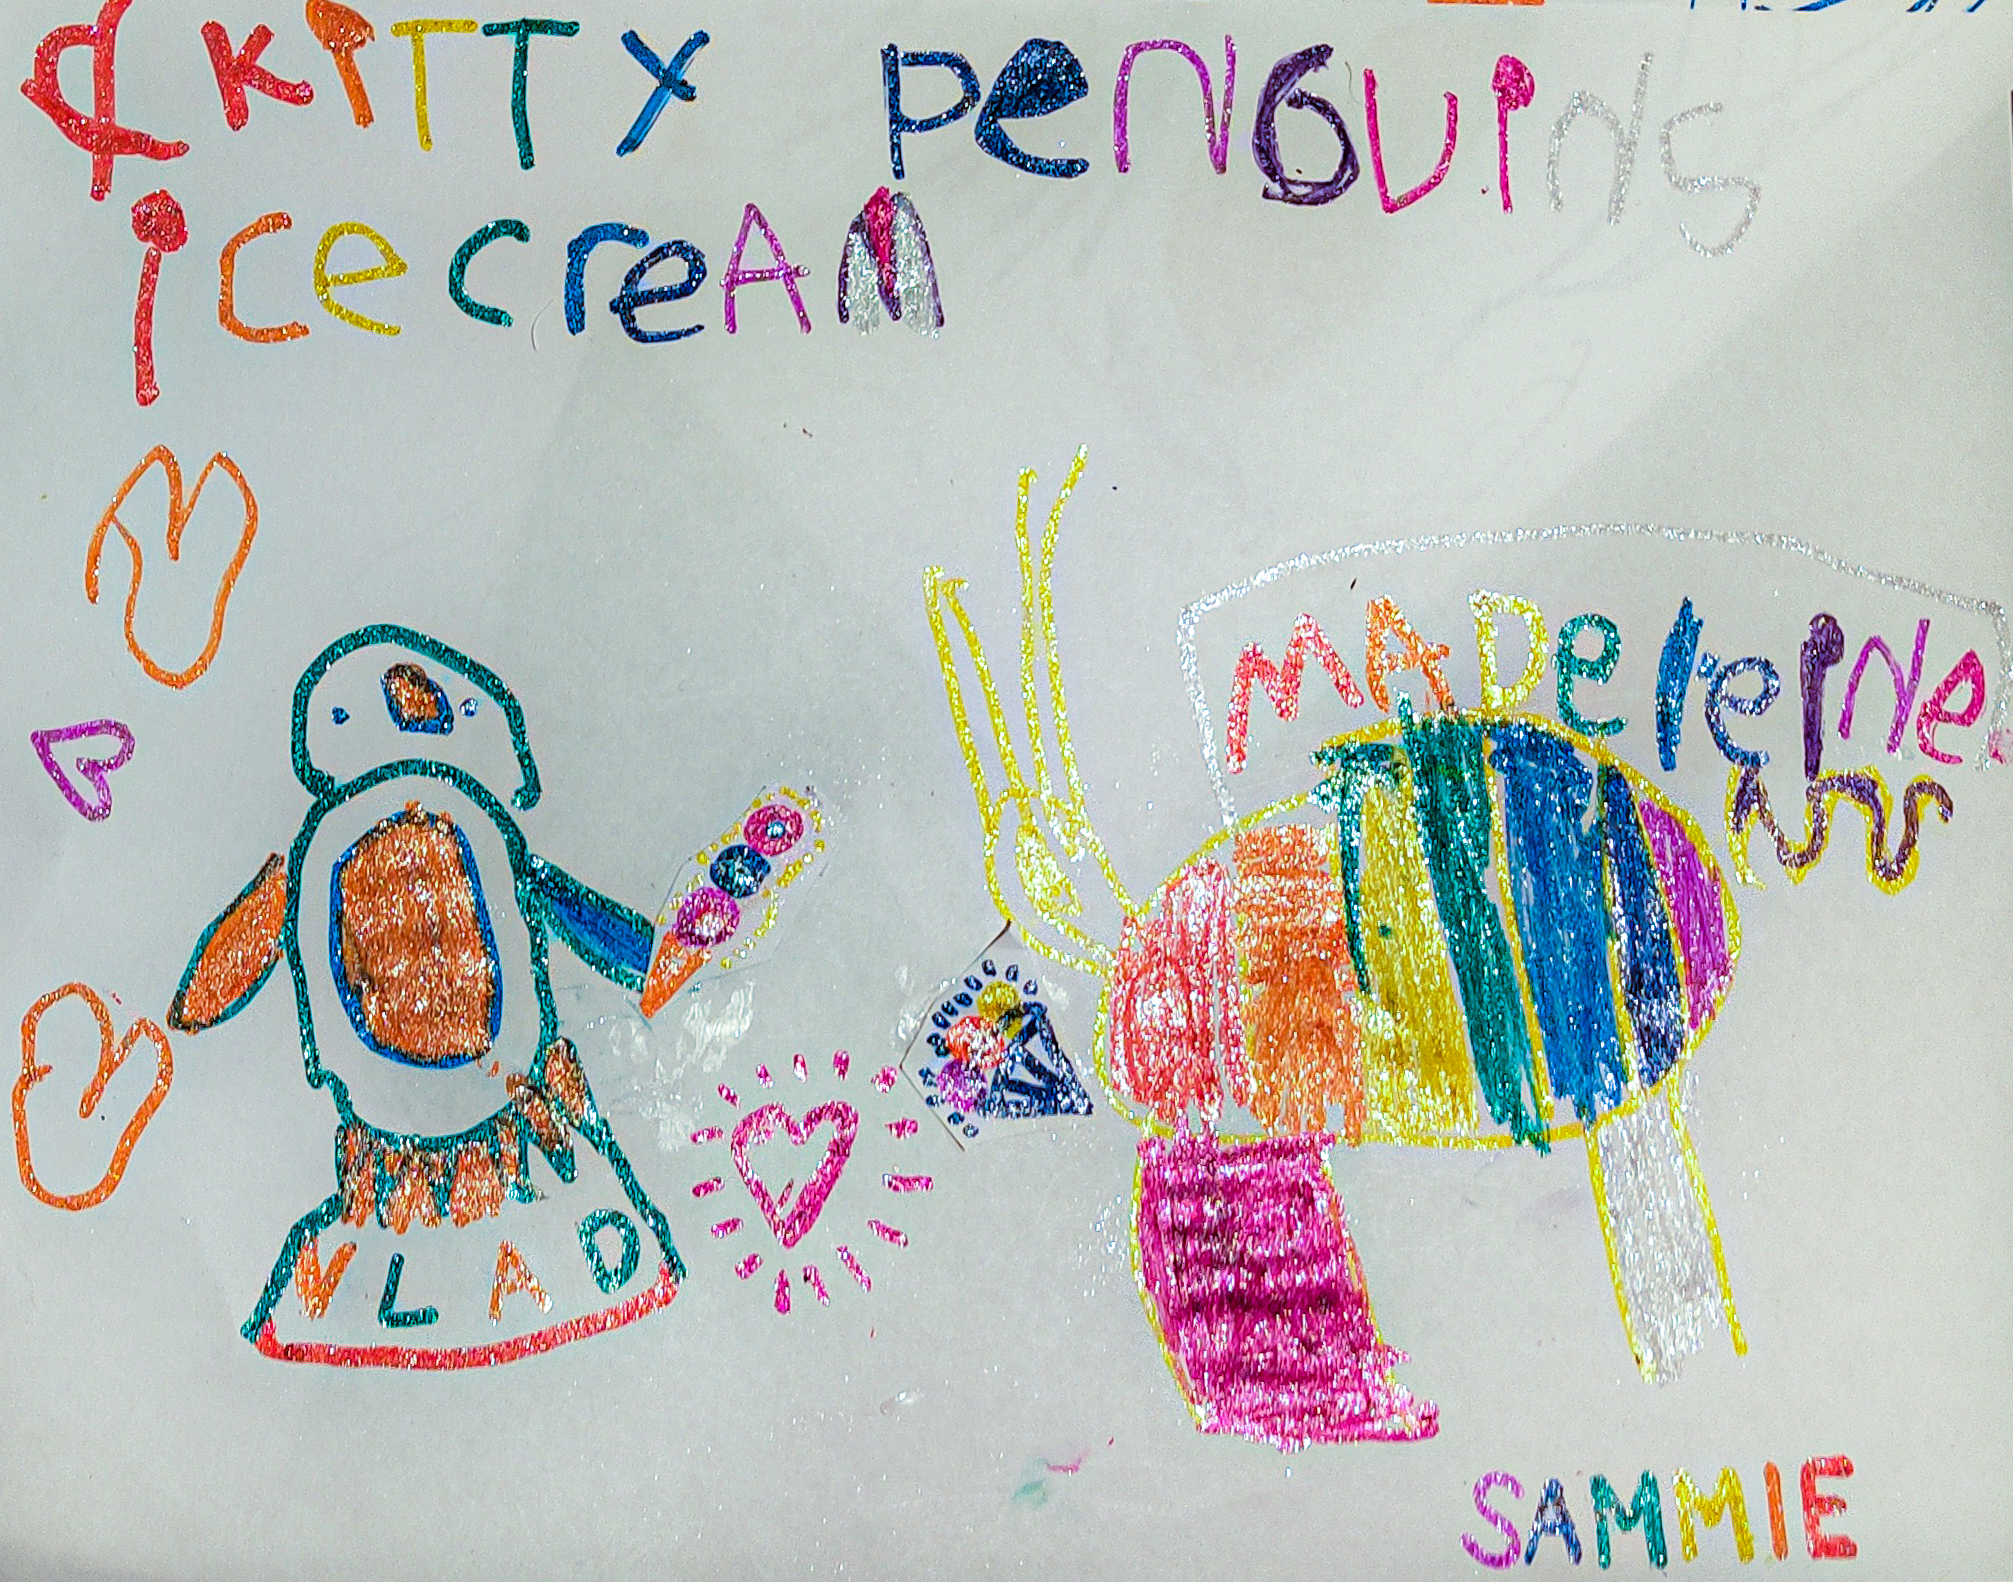 KiTTY PeNGUiNS
iceCreAM
MADeleiNe
VLAD
SAMMIE